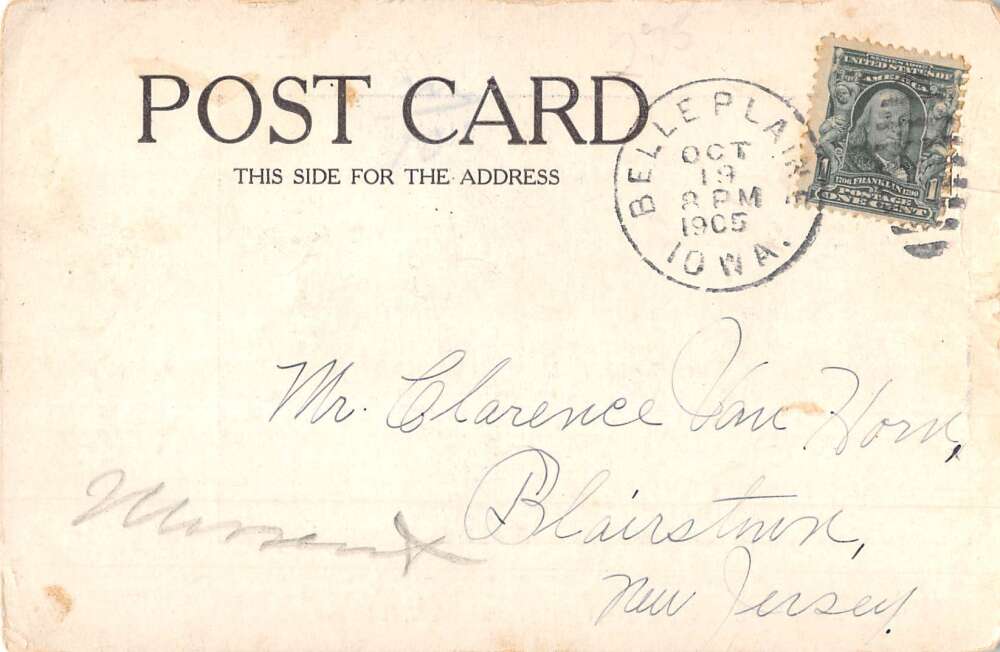 POST CARD
THIS SIDE FOR THE ADDRESS
BELLE PLAINE
OCT
19
8 PM
1905
IOWA.
UNITED STATES OF
AMERICA
1 1706 FRANKLIN 1790 1
POSTAGE
ONE CENT
Mr. Clarence Van Horn,
Blairstown,
New Jersey.